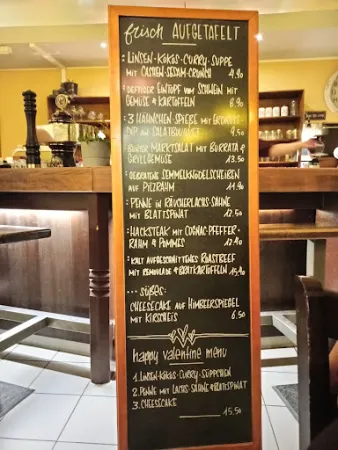 frisch AUFGETAFELT
LINSEN-KOKOS-CURRY-SUPPE
MIT CASHEW-SESAM-CRUNCH 4.90
DEFTIGER EINTOPF VOM SCHWEIN MIT
GEMÜSE & KARTOFFELN 6.90
3 HÄHNCHEN SPIEßE MIT
DIP AN 9.50
BUNTER MARKTSALAT MIT BURRATA &
GRILLGEMÜSE 13.50
GEBRATENE SEMMELKNÖDELSCHEIBEN
AN PILZRAHM 11.90
PENNE IN RÄUCHERLACHS-SAHNE
MIT BLATTSPINAT 12.50
HACKSTEAK MIT COGNAC-PFEFFER-
RAHM & POMMES 12.90
KALT AUFGESCHNITTENES ROASTBEEF
MIT REMOULADE & BRATKARTOFFELN 15.90
... süßes:
CHEESECAKE AUF HIMBEERSPIEGEL
MIT KIRSCHEIS 6.50
happy valentine menu
1. LINSEN-KOKOS-CURRY-SÜPPCHEN
2. PENNE MIT LACHS-SAHNE & BLATTSPINAT
3. CHEESECAKE
15.50